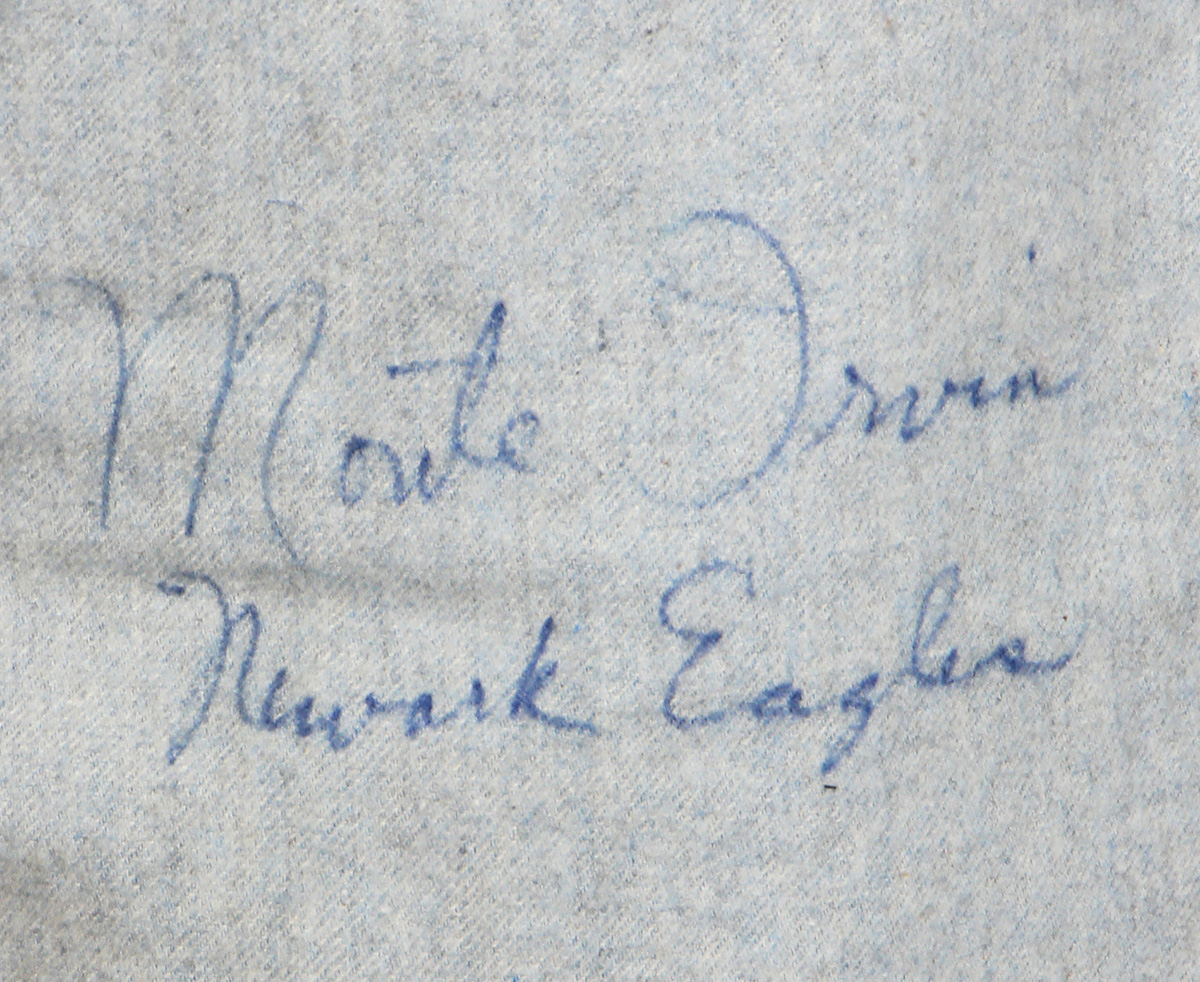 Monte Irvin
Newark Eagles